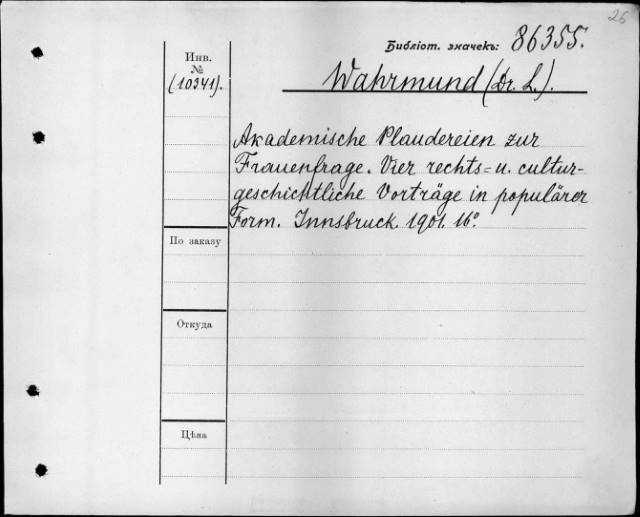 26
Библіот. значекъ: 86355.
Инв.
№
(10341).
Wahrmund (Dr. L.).
Akademische Plaudereien zur
Frauenfrage. Vier rechts= u. cultur-
geschichtliche Vorträge in populärer
Form. Innsbruck. 1901. 16°.
По заказу
Откуда
Цѣна